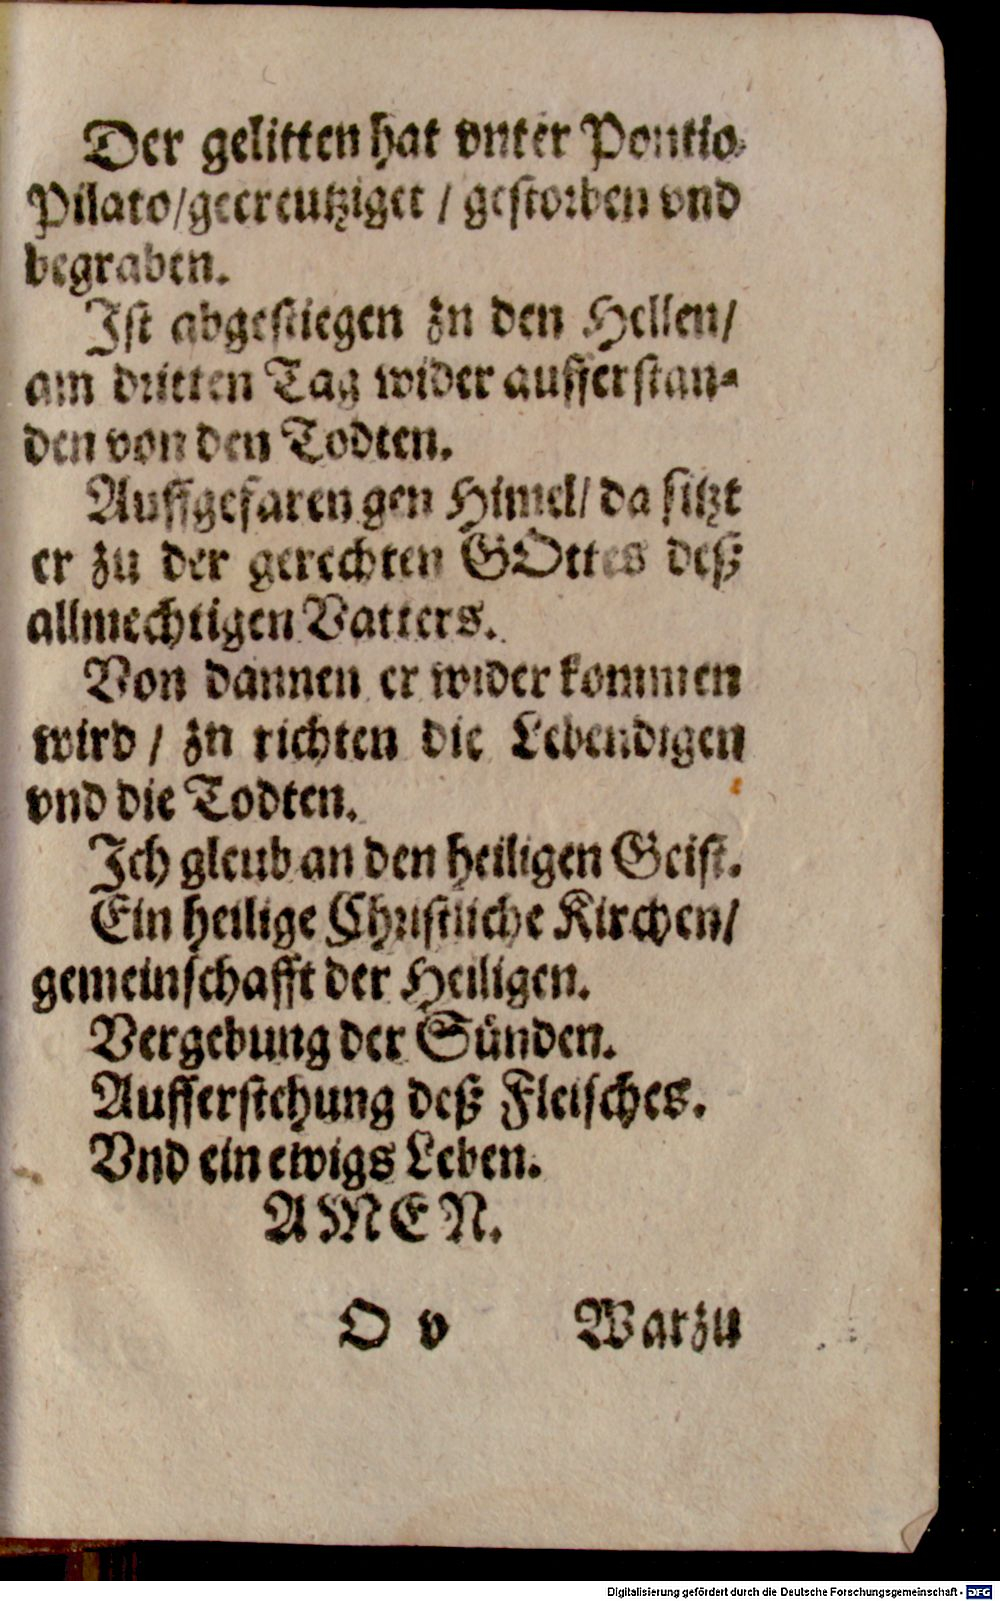 Der gelitten hat vnter Pontio
Pilato/gecreutziget / gestorben vnd
begraben.
Ist abgestiegen zu den Hellen/
am dritten Tag wider aufferstan-
den von den Todten.
Auffgefaren gen Himel/ da sitzt
er zu der gerechten GOttes deß
allmechtigen Vatters.
Von dannen er wider kommen
wird / zu richten die Lebendigen
vnd die Todten.
Ich gleub an den heiligen Geist.
Ein heilige Christliche Kirchen/
gemeinschafft der Heiligen.
Vergebung der Sünden.
Aufferstehung deß Fleisches.
Vnd ein ewigs Leben.
AMEN.
O v Warzu
Digitalisierung gefördert durch die Deutsche Forschungsgemeinschaft - DFG